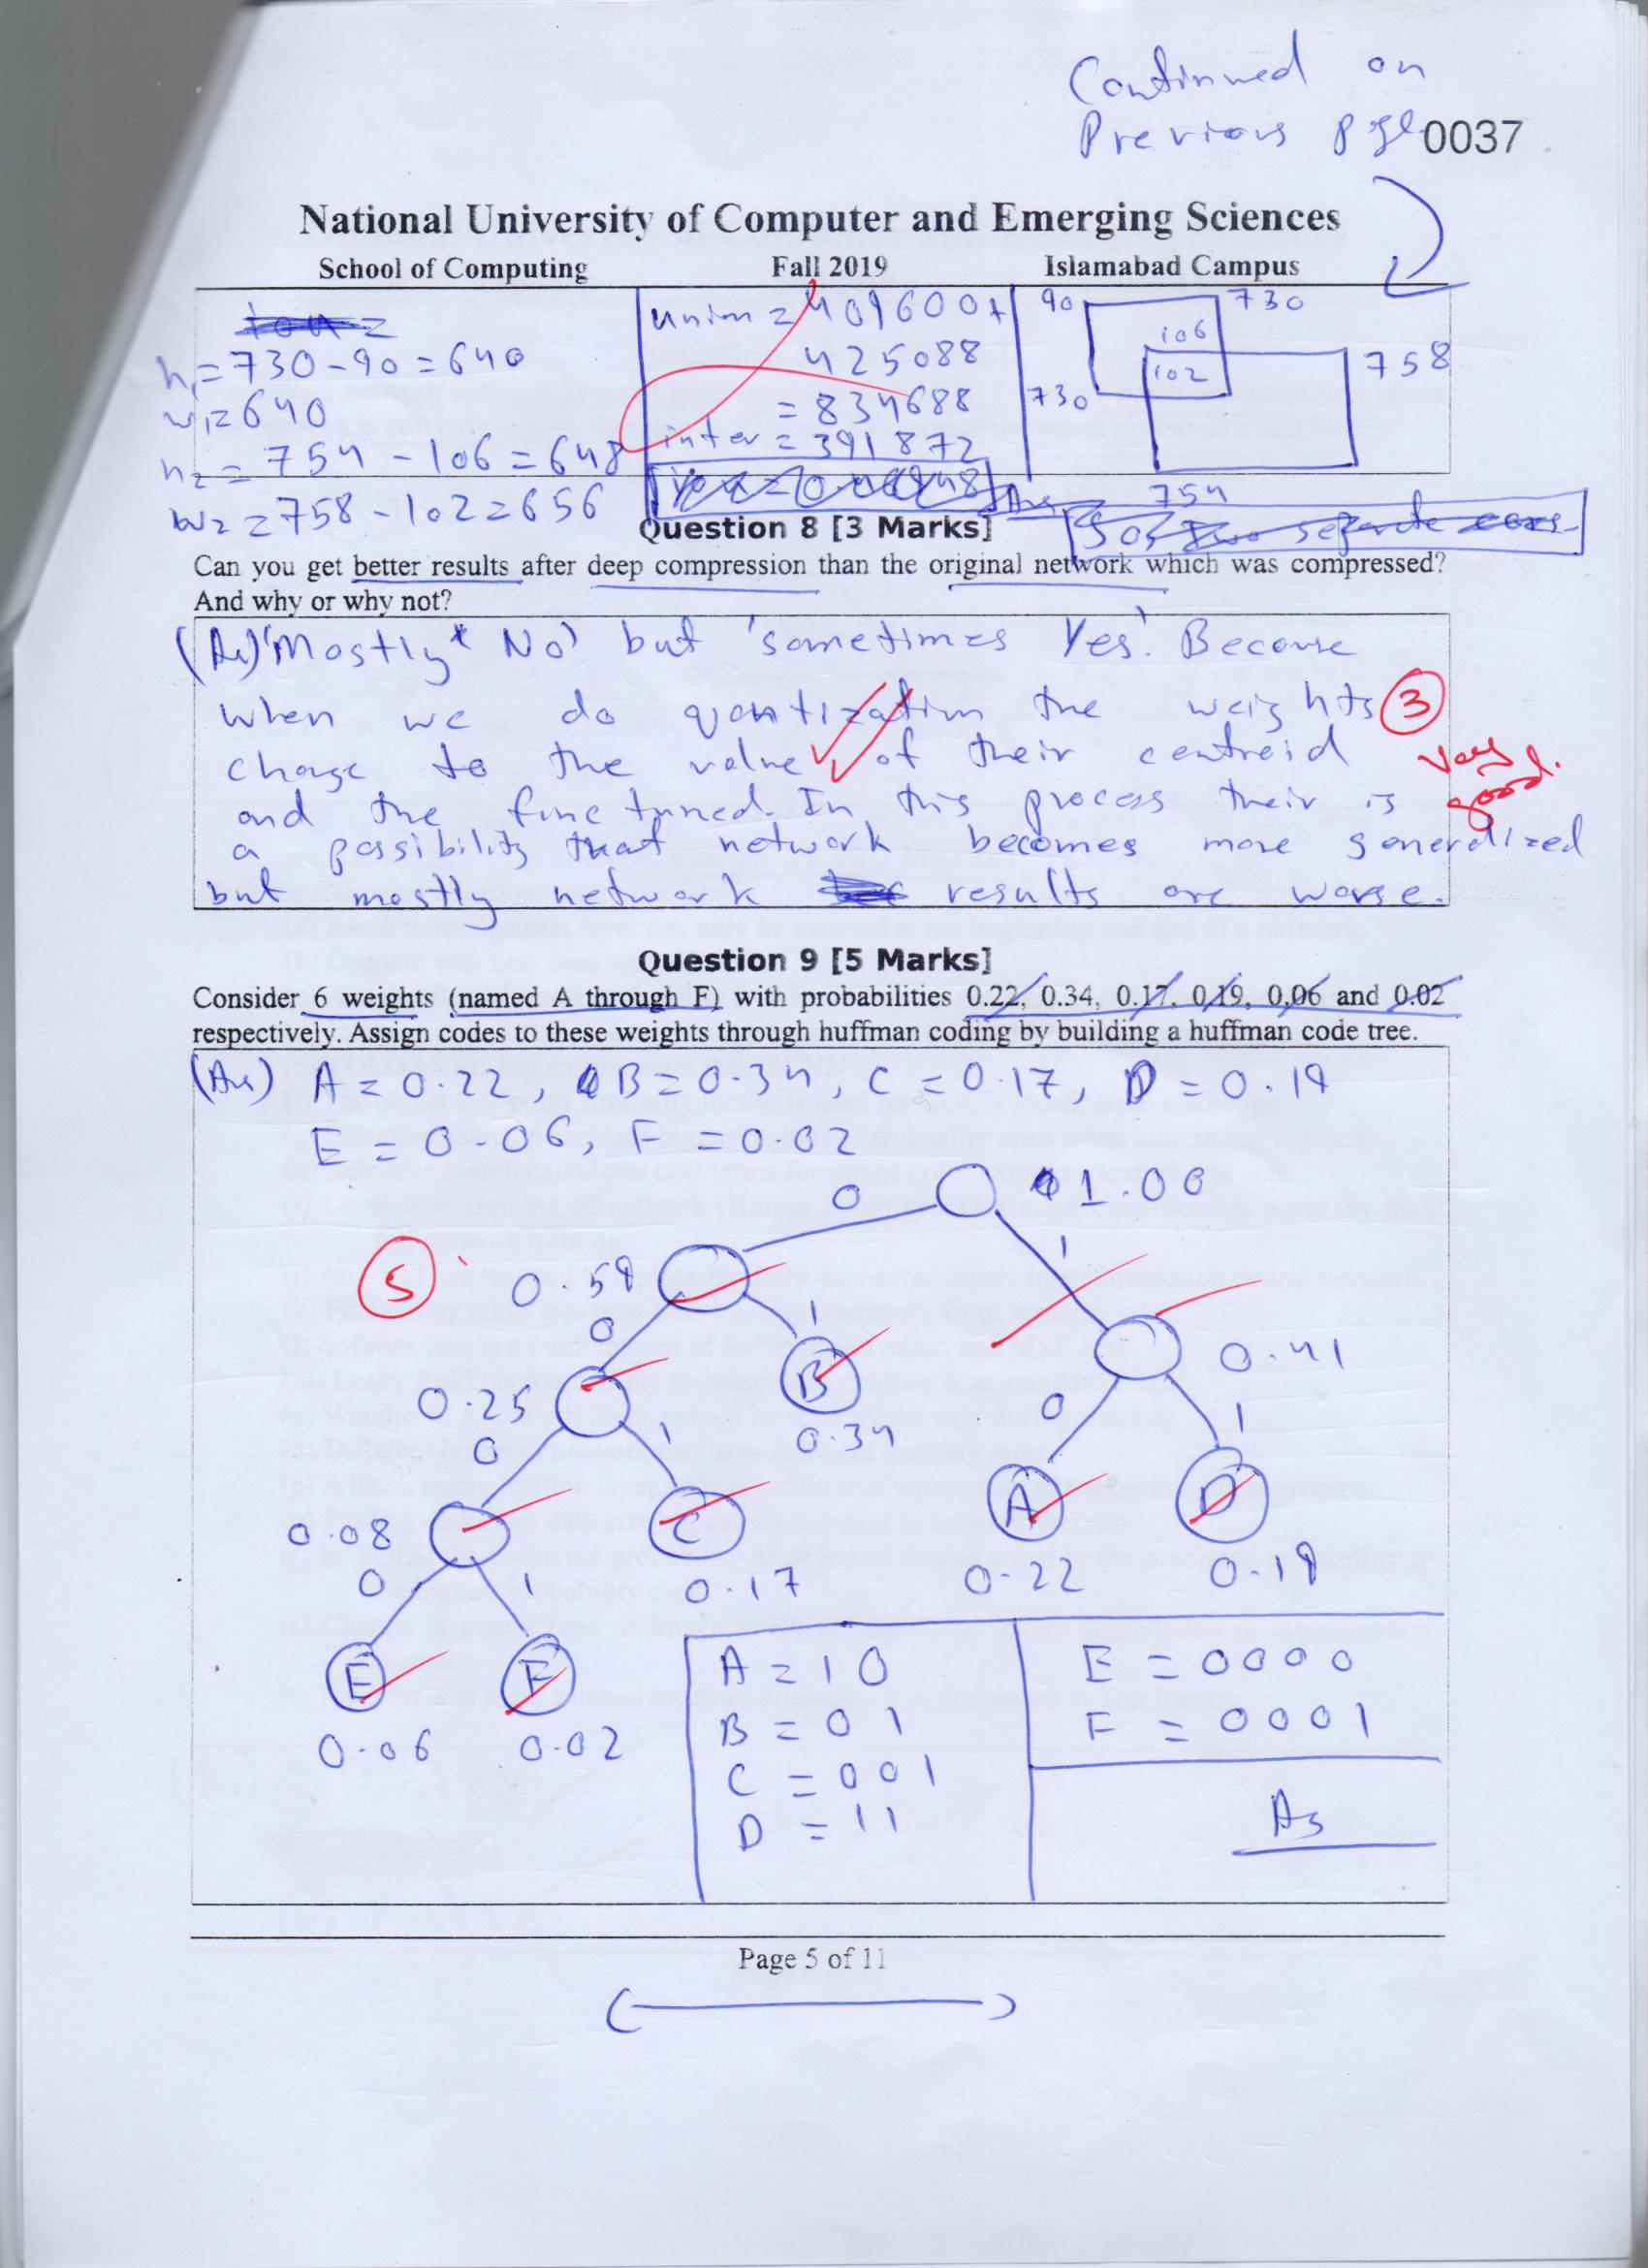 Continued on
Previous page 0037
National University of Computer and Emerging Sciences
School of Computing Fall 2019 Islamabad Campus
h1=730-90=640
w1=640
h2=754-106=648
w2=758-102=656
union=409600+
425088
=834688
inter=391872
90 730
106
102
730
758
754
So, two separate
Question 8 [3 Marks]
Can you get better results after deep compression than the original network which was compressed?
And why or why not?
(As) 'Mostly No' but 'sometimes Yes'. Because
when we do quantization the weights 3
change to the value of their centroid
Very good.
and the fine tuned. In this process their is
a possibility that network becomes more generalized
but mostly network results are worse.
Question 9 [5 Marks]
Consider 6 weights (named A through F) with probabilities 0.22, 0.34, 0.17, 0.19, 0.06 and 0.02
respectively. Assign codes to these weights through huffman coding by building a huffman code tree.
(As) A=0.22, B=0.34, C=0.17, D=0.19
E=0.06, F=0.02
0 1.00
5 0.59 1
0 1 0.41
0.25 B 0 1
0 1 0.34
0.08 C A D
0 1 0.17 0.22 0.19
E F
0.06 0.02
A=10
B=01
C=001
D=11
E=0000
F=0001
As
Page 5 of 11